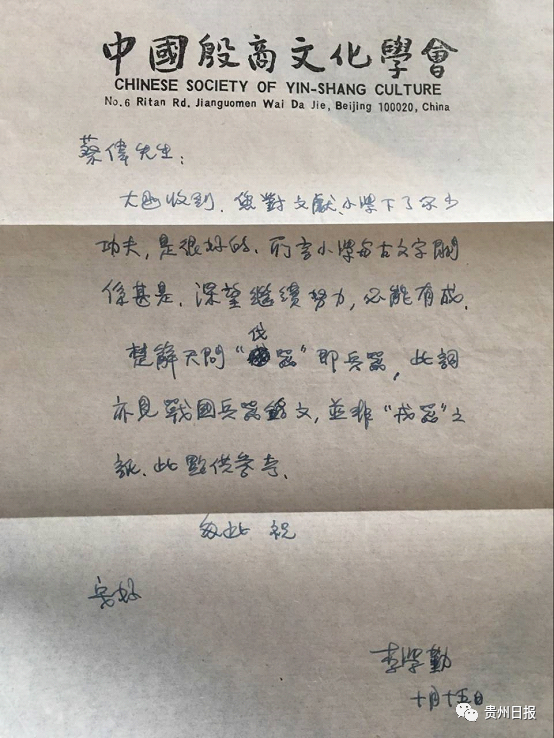 中國殷商文化學會
CHINESE SOCIETY OF YIN-SHANG CULTURE
No.6 Ritan Rd. Jianguomen Wai Da Jie, Beijing 100020, China
蔡偉先生：
大函收到．您對文獻、小學下了不少
功夫，是很好的．所言小學与古文字關
係甚是．深望繼續努力，必能有成．
楚辭天問“伐器”即兵器，此詞
亦見戰國兵器銘文，並非“戎器”之
訛．此點供參考．
匆此 祝
安好
李學勤
十月十五日
贵州日报